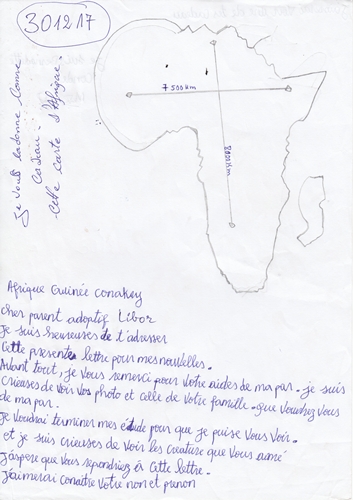 301217
Je vous ladonne comme
cadeau.
cette carte d'Afrique.
7500km
8000km
Afrique Guinée conakry
cher parent adoptif Libor
je suis heureuses de t'adresser
Cette presente lettre pour mes nouvelles.
Avant tout, je vous remerci pour votre aides de ma par. je suis
crieuses de voir vos photo et celle de votre famille. que vouhez vous
de ma par.
Je voudrai terminer mes étude pour que je puise vous voir.
et je suis crieuses de voir les creature que vous aimé
J'aspere que vous repondriez à cette lettre.
J'aimerai conaitre votre non et prenon